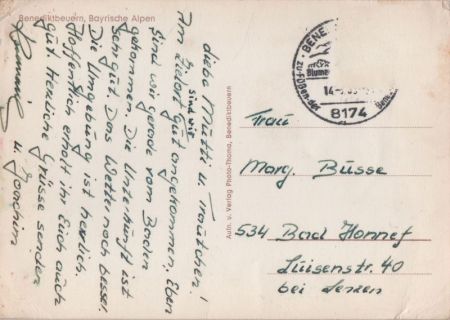 Benediktbeuern, Bayrische Alpen
Liebe Mutti u. Trautchen!
sind wir
Am Zielort gut angekommen. Eben
sind wir gerade vom Baden
gekommen. Die Unterkunft ist
sehr gut. Das Wetter noch besser.
Die Umgebung ist herlich.
Hoffentlich erholt ihr Eich auch
gut. Herzliche Grüsse senden
u. Joachim
Aufn. u. Verlag Photo-Thoma, Benediktbeuern
BENE
zu Füßen der
Blume
14
8174
Frau
Marg. Büsse
534 Bad Honnef
Luisenstr. 40
bei